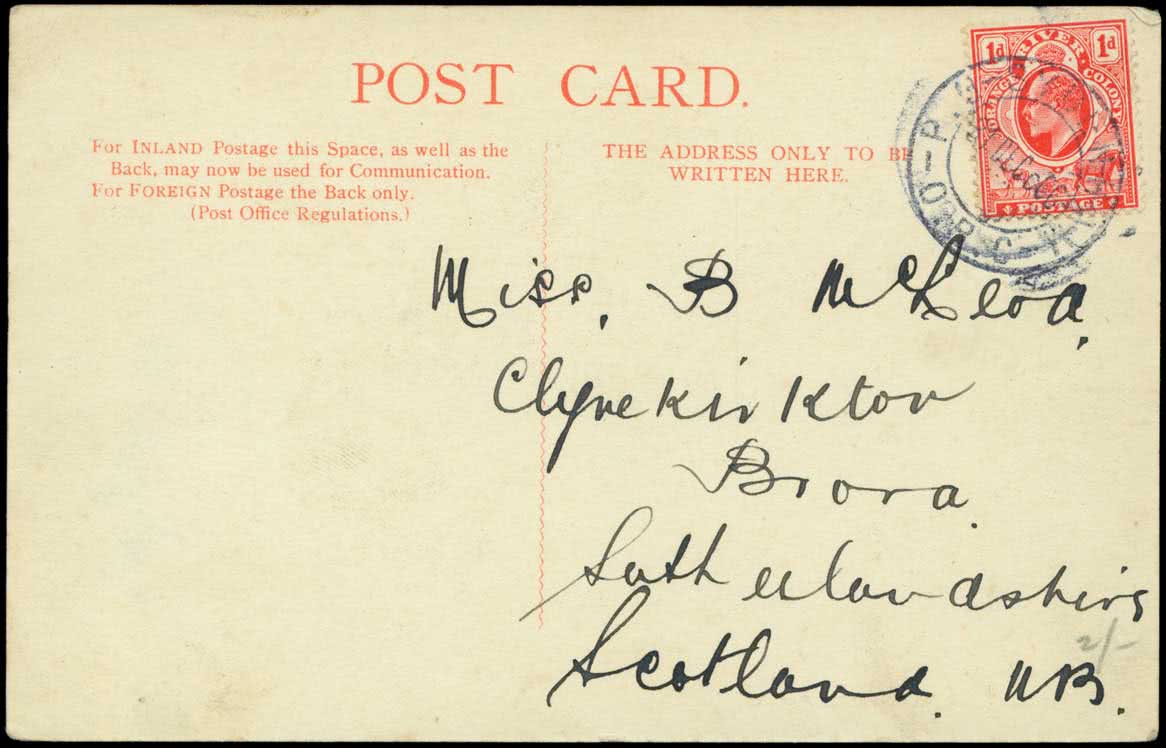 POST CARD.
For INLAND Postage this Space, as well as the
Back, may now be used for Communication.
For FOREIGN Postage the Back only.
(Post Office Regulations.)
THE ADDRESS ONLY TO BE
WRITTEN HERE.
ORANGE RIVER COLONY
1d 1d
POSTAGE
O.R.C
Miss, B McLeod,
Clynekirkton
Brora
Sutherlandshire
Scotland. N.B.
2/-